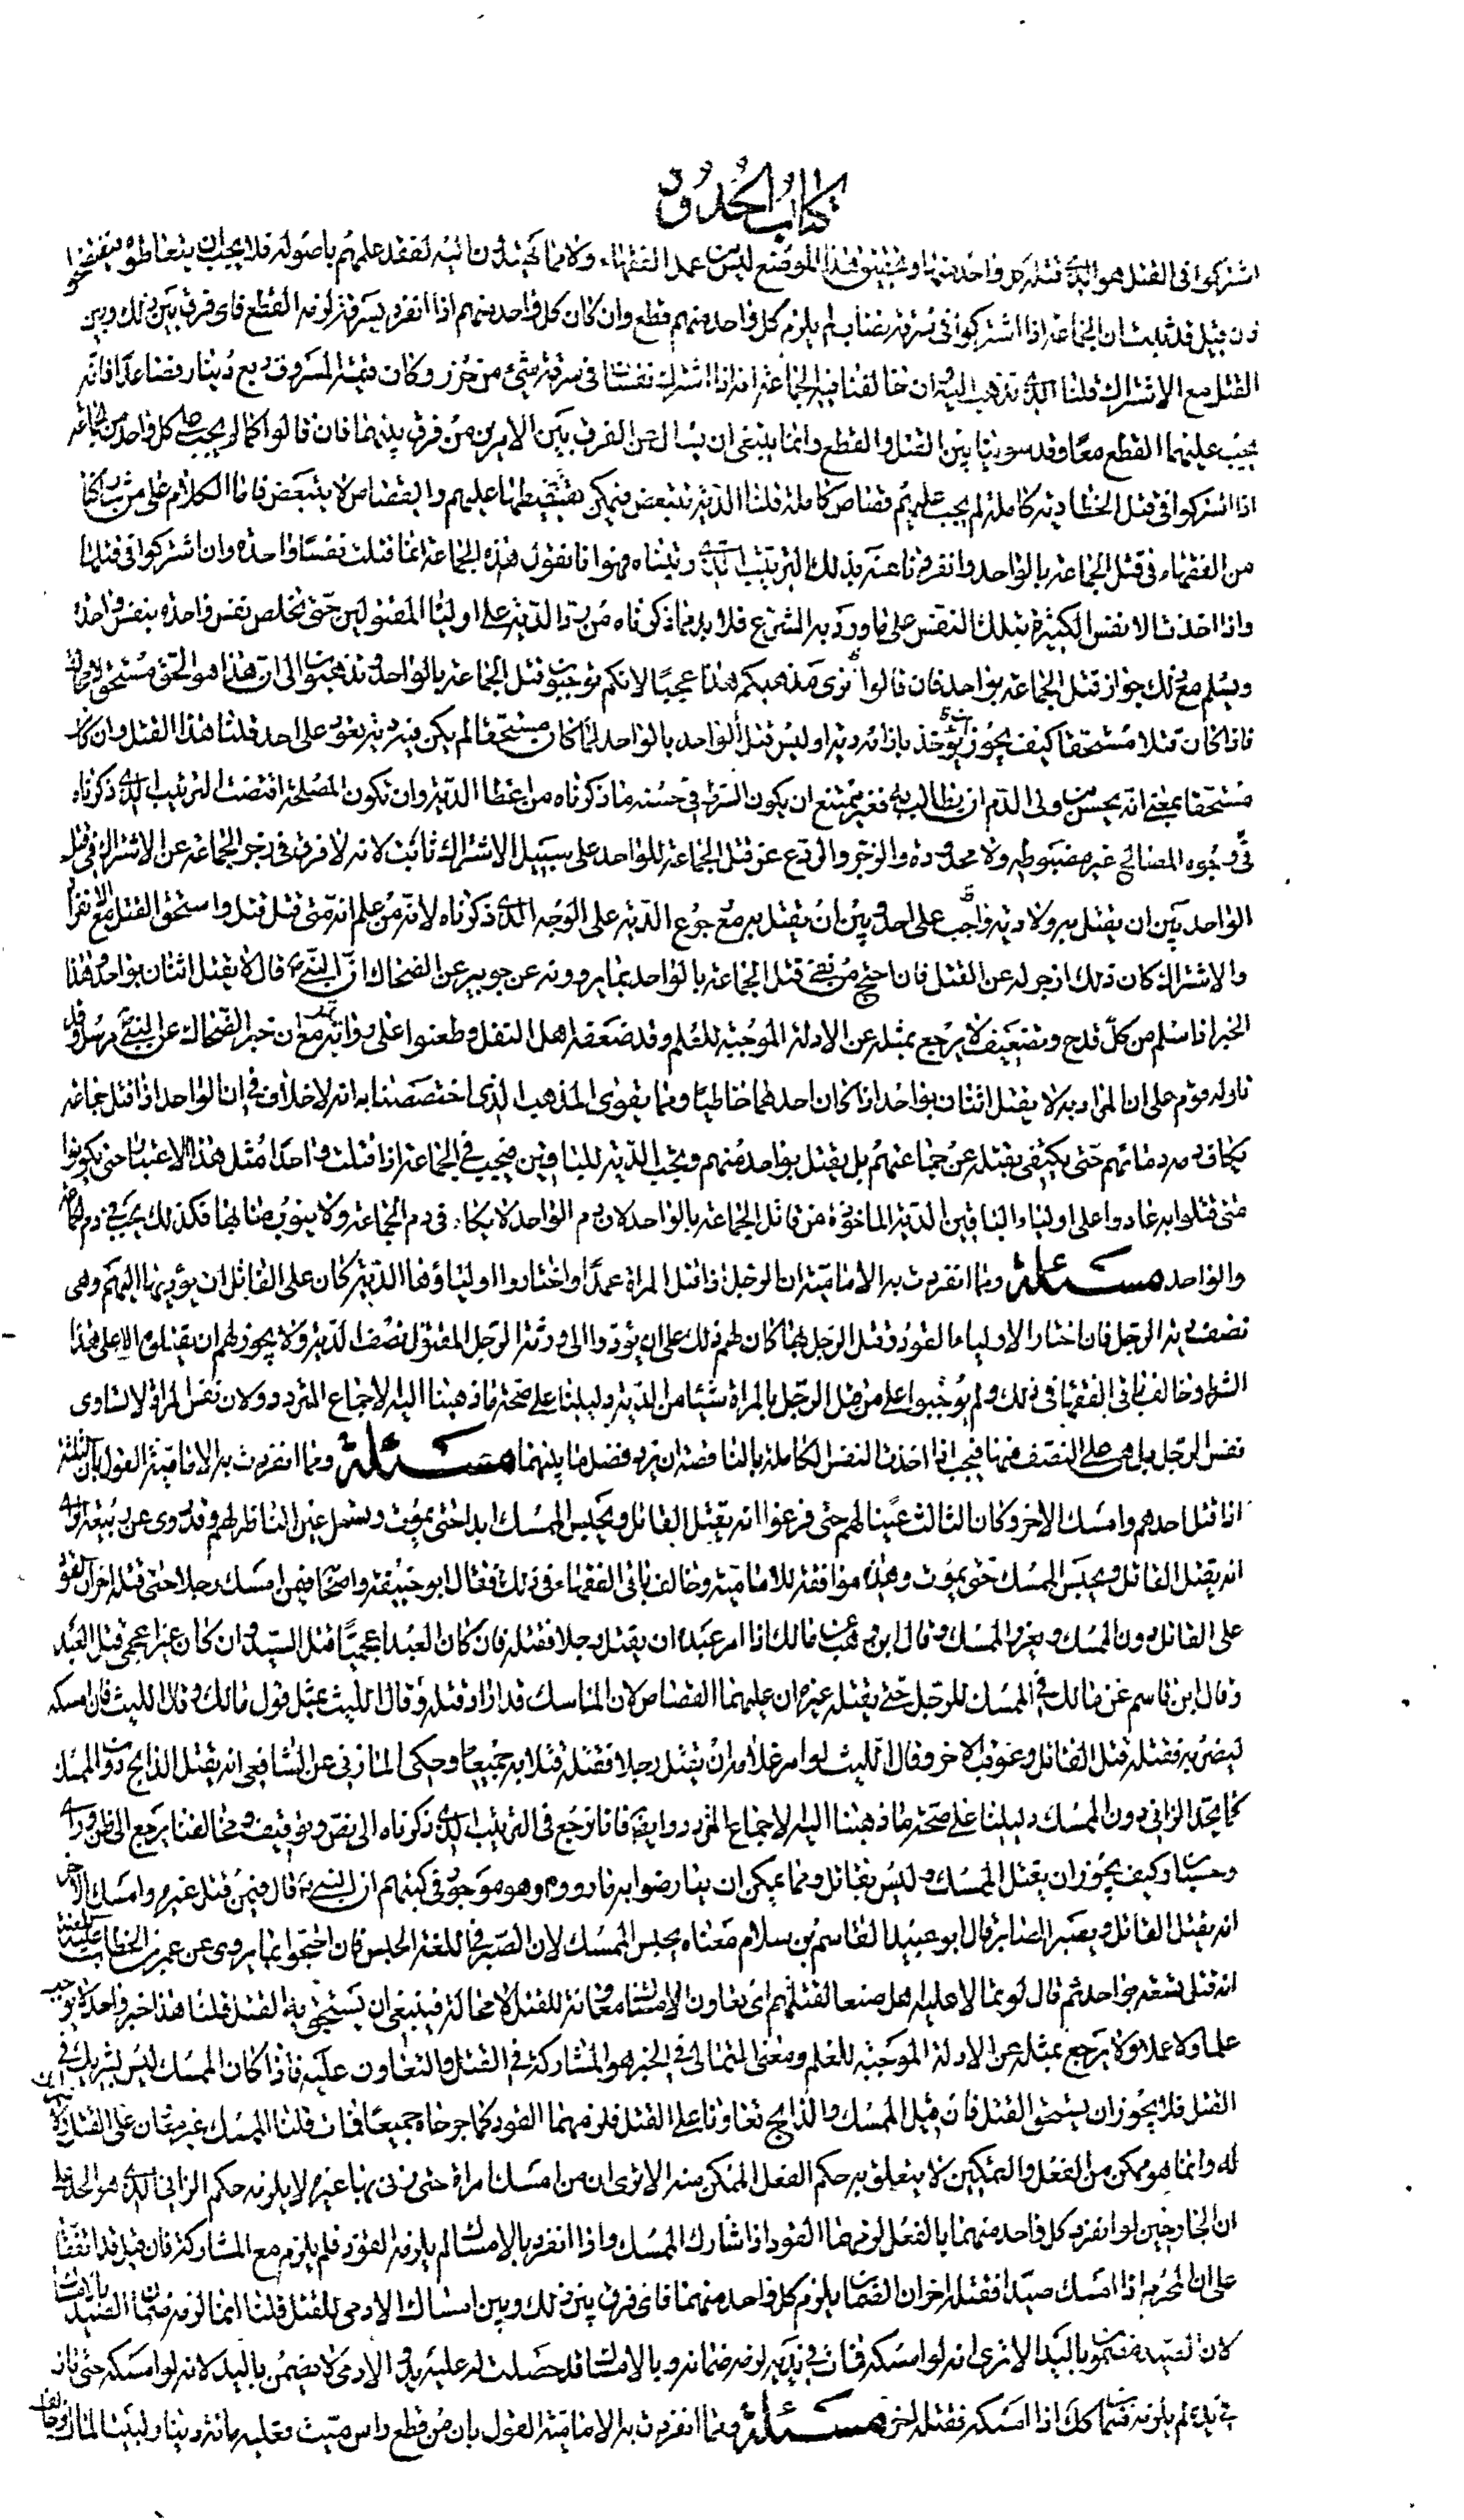 كتاب الحدود
اشتركوا في القتل هو الذي قتله كل واحد منهما وتحقيق هذا الموضع ليس من عمل الفقهاء ولا مما يحيذون فيه لفقد علمهم باصوله فلا يجب ان يتعاطوه
فان قيل قد ثبت ان الجماعة اذا اشتركوا في سرقة نصاب لم يلزم كل واحد منهم قطع وان كان كل واحد منهم اذا انفرد بسرقته لزمه القطع فاي فرق بين ذلك وبين
القتل مع الاشتراك قلنا الذي نذهب اليه ان خالفنا فيه الجماعة انه اذا اشترك نفسان في سرقة شيء من حرز وكان قيمة المسروق ربع دينار فصاعدا فانه
يجب عليهما القطع معا وقد سوينا بين القتل والقطع وانما ينبغي ان يسال عن الفرق بين الامرين من فرق بينهما فان قالوا كما لم يجب على كل واحد من الجماعة
اذا اشتركوا في قتل الخطا دية كاملة لم يجب عليهم قصاص كامله قلنا الدية تتبعض فيمكن تقسيطها عليهم والقصاص لا يتبعض فاما الكلام على من شاركنا
من الفقهاء في قتل الجماعة بالواحد وانفردنا عنه بذلك الترتيب الذي رتبناه فهو انا نقول هذه الجماعة انما قتلت نفسا واحدة وان اشتركوا في قتلها
واذا اخذت الانفس الكثيرة بتلك النفس على ما ورد به الشرع فلا بد مما ذكرناه من رد الدية على اولياء المقتولين حتى تخلص نفس واحدة بنفس واحدة
ويسلم مع ذلك جواز قتل الجماعة بواحد فان قالوا نرى مذهبكم هذا عجيبا لانكم توجبون قتل الجماعة بالواحد وتذهبون الى ان هذا هو الحق مستحق
فاذا كان قتلا مستحقا كيف يجوز يؤخذ بازائه دية اوليس قتل الواحد بالواحد لما كان مستحقا لم يكن فيه دية تعود على احد قلنا هذا القتل وان كان
مستحقا بمعنى انه يحسن من ولي الدم ان يطالب به فغير ممتنع ان يكون الشرط في حسنه ما ذكرناه من اعطا الدية وان تكون المصلحة اقتضت الترتيب الذي ذكرناه
في وجوه المصالح غير مضبوطة ولا محدودة والزجر والردع عن قتل الجماعة للواحد على سبيل الاشتراك ثابت لانه لا فرق في زجر الجماعة عن الاشتراك في قتل
الواحد بين ان يقتل به ولا دية واجب على احد وبين ان يقتل به مع رجوع الدية على الوجه الذي ذكرناه لانه من علم انه متى قتل قتل واستحق القتل مع الانفراد
والاشتراك كان ذلك ازجر له عن القتل فان احتج من نفى قتل الجماعة بالواحد بما يروونه عن جويبر عن الضحاك ان النبي قال لا يقتل اثنان بواحد وهذا
الخبر اذا سلم من كل قدح وتضعيف لا يرجع بمثله عن الادلة الموجبة للعلم وقد ضعفه اهل النقل وطعنوا على رواته مع ان خبر الضحاك عن النبي مرسل وقد
تاوله قوم على ان المراد به لا يقتل اثنان بواحد اذا كان احدهما خاطيا ومما يقوى المذهب الذي اختصصنا به انه لا خلاف في ان الواحد اذا قتل جماعة
يكافيء دمه دمائهم حتى يكتفى بقتله عن جماعتهم بل يقتل بواحد منهم ويجب الدية للباقين فيجب في الجماعة اذا قتلت واحدا مثل هذا الاعتبار حتى يكونوا
متى قتلوا به عادوا على اولياء الباقين الدية الماخوذة من قاتل الجماعة بالواحد لان دم الواحد لا يكافيء دم الجماعة ولا ينوب منابها فكذلك يجب في دم
والواحد مسئلة ومما انفردت به الامامية ان الرجل اذا قتل المراة عمدا واختاروا اولياؤها الدية كان على القاتل ان يؤديها اليهم وهي
نصف دية الرجل فان اختار الاولياء القود وقتل الرجل بها كان لهم ذلك على ان يؤدوا الى ورثة الرجل المقتول نصف الدية ولا يجوز لهم ان يقتلوه الا على هذا
الشرط وخالف باقي الفقهاء في ذلك ولم يوجبوا على من قتل الرجل بالمراة شيئا من الدية دليلنا على صحة ما ذهبنا اليه الاجماع المتردد ولان نفس المراة لا تساوى
نفس الرجل بل هي على النصف منها فيجب اذا اخذت النفس الكاملة بالناقصة ان يرد فضل ما بينهما مسئلة ومما انفردت به الامامية القول بان الثلثة
اذا قتل احدهم وامسك الاخر وكان الثالث عينا لهم حتى فرغوا انه يقتل القاتل ويحبس الممسك ابدا حتى يموت وتسمل عين الناظر لهم وقد روى عن ربيعة الراي
انه يقتل القاتل ويحبس الممسك حتى يموت وهذه موافقة للامامية وخالف باقي الفقهاء في ذلك فقال ابو حنيفة واصحابه فيمن امسك رجلا حتى قتله اخر ان القود
على القاتل دون الممسك ويعزر الممسك وقال ابن وهب عن مالك اذا امر عبده ان يقتل رجلا فقتله فان كان العبد اعجميا قتل السيد وان كان غير اعجمي قتل العبد
وقال ابن قاسم عن مالك في الممسك للرجل حتى يقتله غيره ان عليهما القصاص لان الماسك قد اراد قتله وقال الليث بمثل قول مالك وقال الليث فان امسكه
ليضربه فقتله قتل القاتل وعوقب الاخر وقال الليث لو امر غلامه ان يقتل رجلا فقتله قتلا به جميعا وحكى المازني عن الشافعي انه يقتل الذابح دون الممسك
كما يحد الزاني دون الممسك دليلنا على صحة ما ذهبنا اليه الاجماع المتردد وايضا فانا نرجع في الترتيب الذي ذكرناه الى نص وتوقيف ومخالفنا يرجع الى ظن وراى
وحسبان وكيف يجوز ان يقتل الممسك وليس بقاتل ومما يمكن ان يعارضوا به ما رووه وهو موجود في كتبهم ان النبي قال فيمن قتل غيره وامسك الاخر
انه يقتل القاتل ويصبر الصابر قال ابو عبيد القاسم بن سلام معناه يحبس الممسك لان الصبر في اللغة الحبس فان احتجوا بما يروى عن عمر بن الخطاب
انه قتل سبعة بواحد ثم قال لو تمالا عليه اهل صنعا لقتلتهم اي تعاون الامساك معاونة للقتل لا محالة فينبغي ان يستحق به القتل قلنا هذا خبر واحد لا يوجب
علما ولا عملا ولا يرجع بمثله عن الادلة الموجبة للعلم ومعنى التمالى في الخبر هو المشاركة في القتل والتعاون عليه فاذا كان الممسك ليس بشريك في
القتل فلا يجوز ان يستحق القتل فان قيل الممسك والذابح تعاونا على القتل فلزمهما القود كما جرحاه جميعا فمات قلنا الممسك غير معاون على القتل
له وانما هو ممكن من الفعل والتمكين لا يتعلق به حكم الفعل الممكن منه الا ترى ان من امسك امراة حتى زنى بها غيره لا يلزمه حكم الزاني الذي هو الحد
ان الجارحين لو انفرد كل واحد منهما بالفعل لزمهما القود اذا شارك الممسك واذا انفرد بالامساك لم يلزمه القود فلم يلزم مع المشاركة فان قيل قد اتفقنا
على ان المحرم اذا امسك صيدا فقتله اخر ان الضمان يلزم كل واحد منهما فاي فرق بين ذلك وبين امساك الادمي للقتل قلنا انما لزمه ضمان الصيد بالامساك
لان الصيد مضمون باليد الا ترى انه لو امسكه فمات في يده لزمه ضمانه وبالامساك قد حصلت له عليه يد والادمى لا يضمن باليد لانه لو امسكه حتى مات
في يده لم يلزمه ضمان كذلك اذا امسكه فقتله اخر مسئلة ومما انفردت به الامامية القول بان من قطع راس ميت فعليه مائة دينار لبيت المال